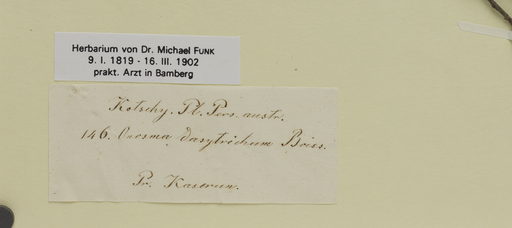 Herbarium von Dr. Michael FUNK
9. I. 1819 - 16. III. 1902
prakt. Arzt in Bamberg
Kotschy. Pl. Pers. austr.
146. Onosma dasytrichum Boiss.
Pr. Kaserun.